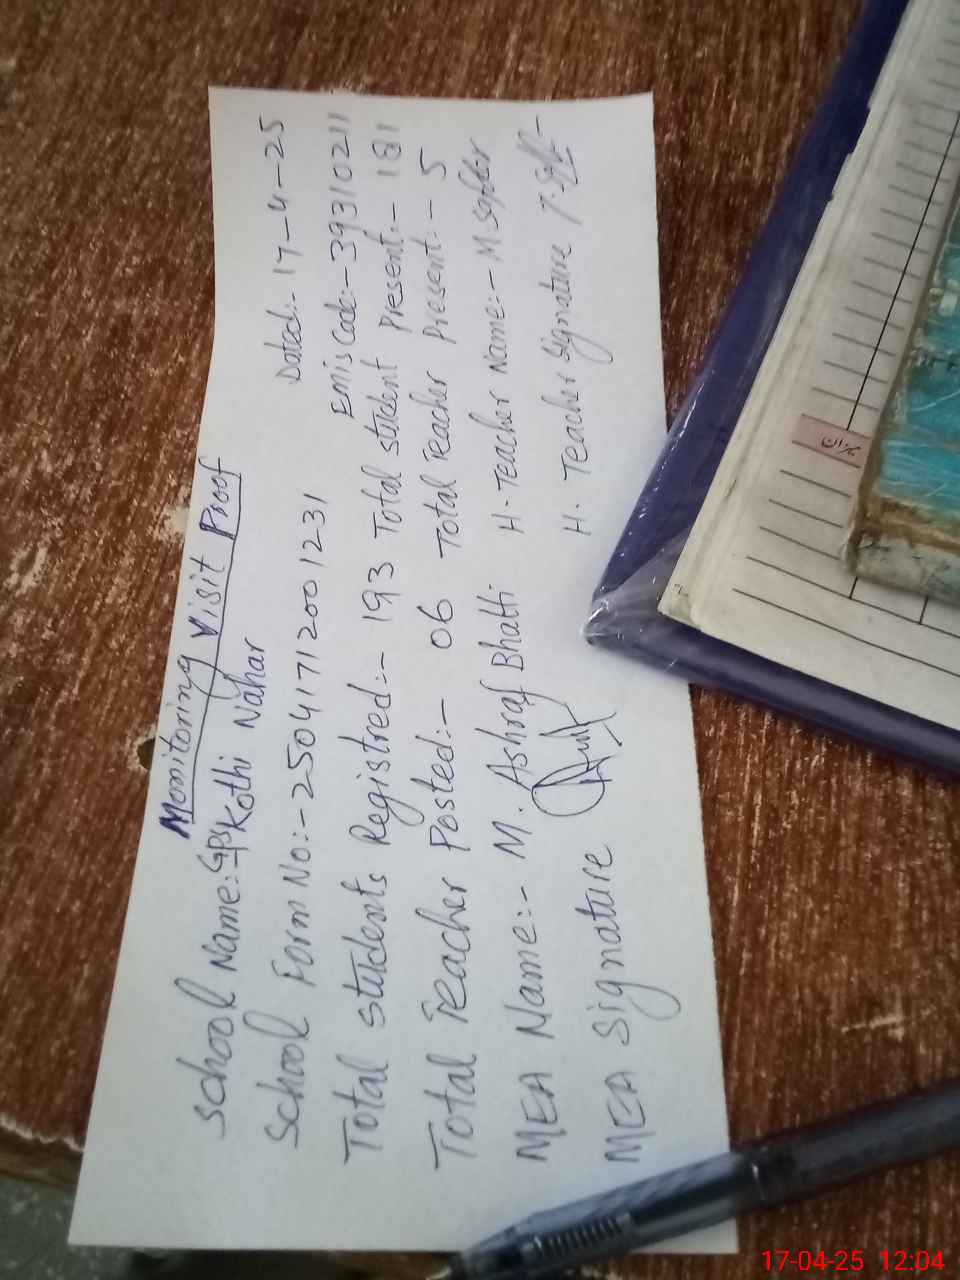 Monitoring Visit Proof
School Name:- GPS Kothi Nahar Dated:- 17-4-25
School Form No:- 2504171200 1231 Emis Code:- 39310211
Total students Registred:- 193 Total student Present:- 181
Total Teacher Posted:- 06 Total Teacher Present:- 5
MEA Name:- M. Ashraf Bhatti H. Teacher Name:- M Safder
MEA Signature H. Teacher Signature
میزان
17-04-25 12:04